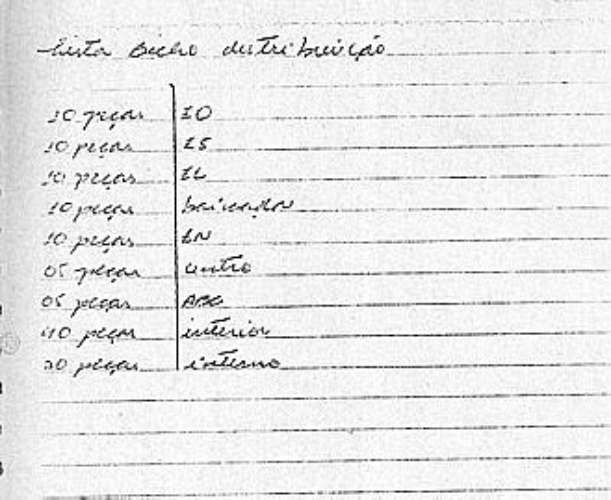 Lista Bicho distribuição
10 peças ZO
10 peças ZS
10 peças ZL
10 peças baixada
10 peças ZN
05 peças centro
05 peças ABC
40 peças interior
20 peças interno